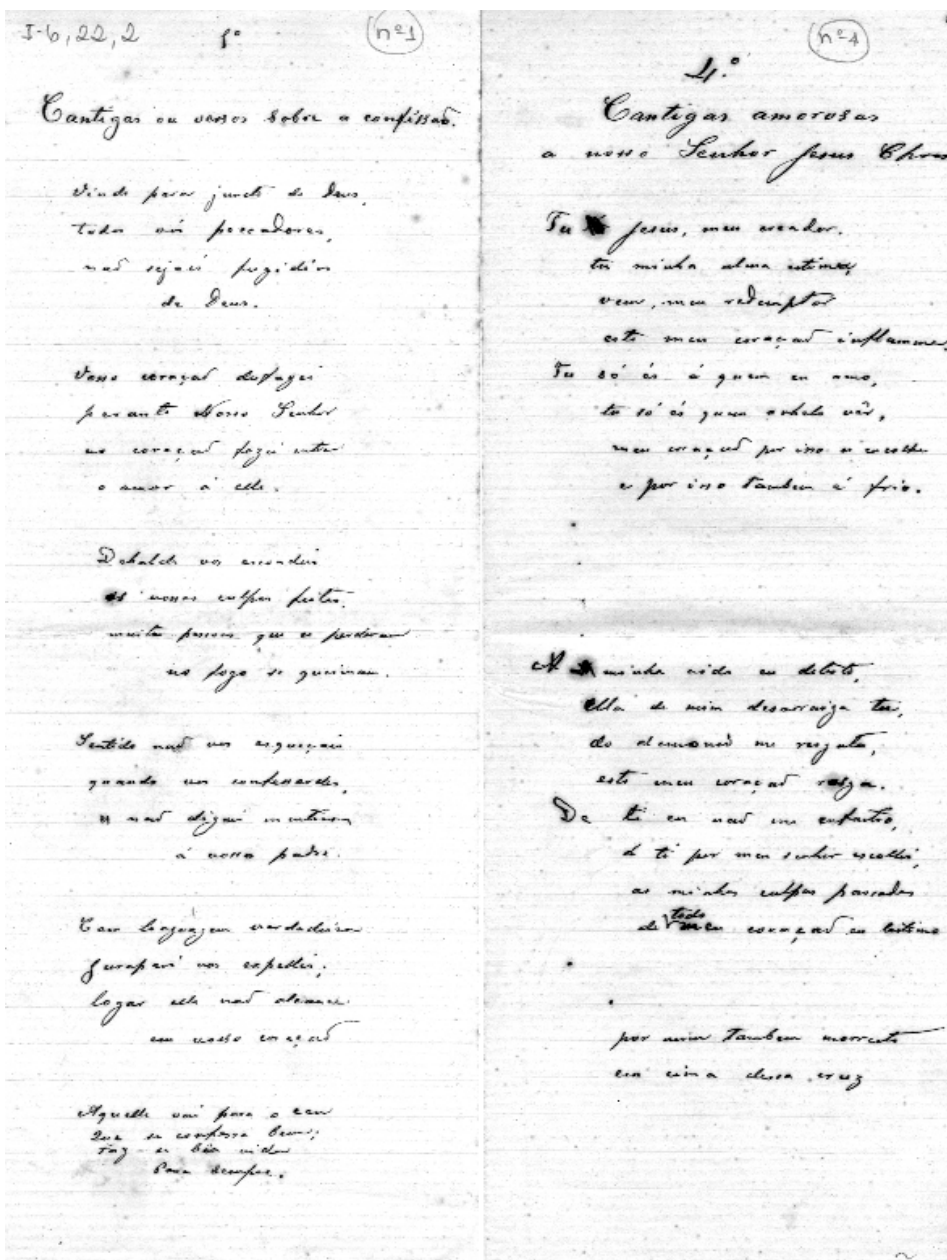 I-6,22,2
1º
nº1
Cantigas ou versos sobre a confissaõ.
Vinde para junto de Deus,
todos vós peccadores,
naõ sejais fugidios
de Deus.
Vosso coraçaõ
perante Nosso Senhor
no coraçaõ fazei entrar
o amor á elle.
Debalde vos escondeis
as vossas culpas feitas,
muitas pessoas que se perderam
no fogo se queimam.
Sentido naõ vos esqueçais
quando vos confessardes,
e naõ digais mentiras
á vosso padre.
Com linguagem verdadeira
Jurupari vos expelli,
logar elle naõ alcance
em vosso coraçaõ
Aquelle vai para o ceu
Que se confessa bem;
faz-se vida
Para sempre.
nº4
4.º
Cantigas amorosas
a nosso Senhor Jesus Chris
Tu Jesus, meu creador.
tu minha alma
vem, meu redemptor
este meu coraçaõ inflamma,
Tu só és á quem eu amo,
tu só és quem anhelo vêr,
meu coraçaõ por isso se
e por isso tambem é frio.
A minha vida eu detesto,
ella de mim desarraiga tu,
do demonio me resgata,
este meu coraçaõ rasga.
De ti eu naõ me enfastio,
á ti por meu senhor escolhi,
as minhas culpas passadas
de todo meu coraçaõ eu lastimo
por mim tambem morreste
em cima dessa cruz